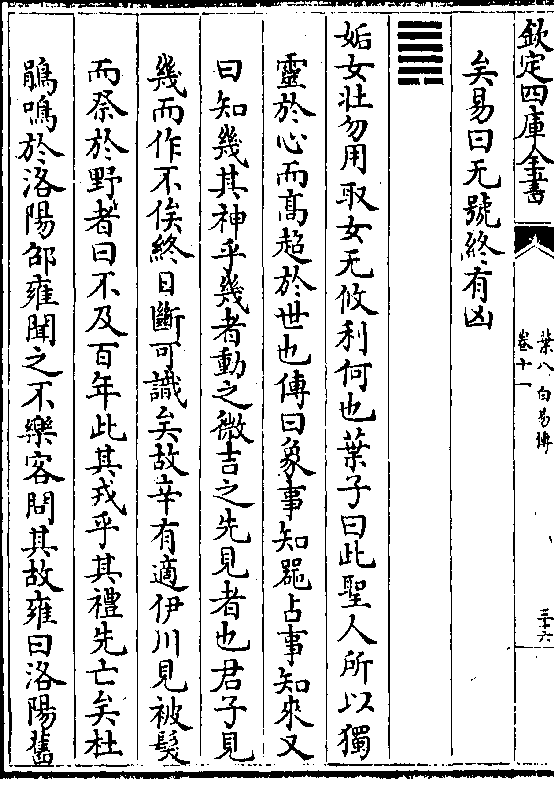 欽定四庫全書
葉八白易傳
卷十一
三十六
矣易曰无號終有凶
姤女壯勿用取女无攸利何也葉子曰此聖人所以獨
靈於心而髙超於世也傳曰象事知噐占事知來又
曰知幾其神乎幾者動之微吉之先見者也君子見
幾而作不俟終日斷可識矣故辛有適伊川見被髮
而祭於野者曰不及百年此其戎乎其禮先亡矣杜
鵑鳴於洛陽邵雍聞之不樂客問其故雍曰洛陽舊